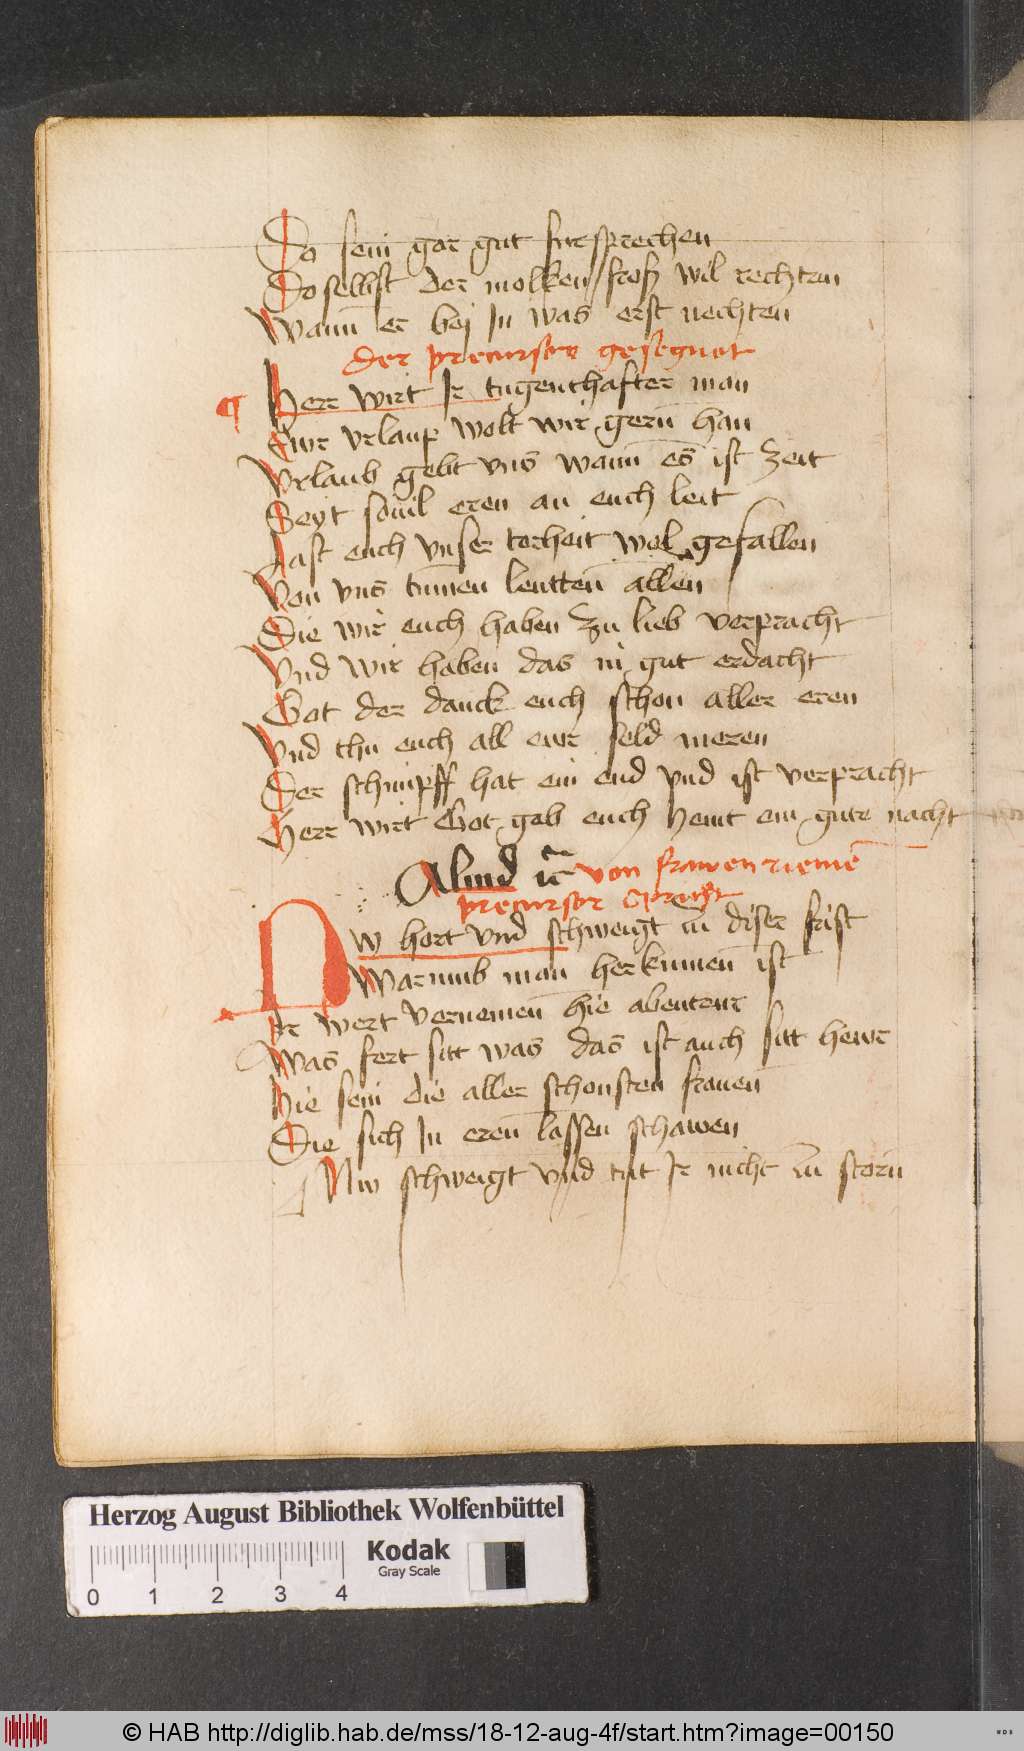 Do sein gar gut fursprechen
Doselbst der molken froß wil rechten
Wann er bej In was erst nechten
der precursor gesegnet
¶ Herr wirt Ir tugenthafter man
Ewr vrlaup wolt wir gern han
Vrlaub gebt vns wann es ist zeit
Seyt souil eren an euch leit
Last euch vnser torheit wol gefallen
Von vns tumen leutten allen
Die wir euch haben zu lieb verpracht
Vnd wir haben das in gut erdacht
Got der danck euch schon aller eren
Vnd thu euch all ewr seld meren
Der schimpff hat ein end vnd ist verpracht
Herr wirt Got geb euch heint ein gute nacht
Aliud von frawen riemen
precursor Spricht
Nw hort vnd schweigt in diser frist
Warumb man herkumen ist
Ir wert vernemen hie abenteur
Was fert sitt was das ist auch sitt hewr
Hie sein die aller schonsten frauen
Die sich In eren lassen schawen
Nw schweigt vnd tut Ir nicht storn
Herzog August Bibliothek Wolfenbüttel
Kodak
Gray Scale
0 1 2 3 4
© HAB http://diglib.hab.de/mss/18-12-aug-4f/start.htm?image=00150